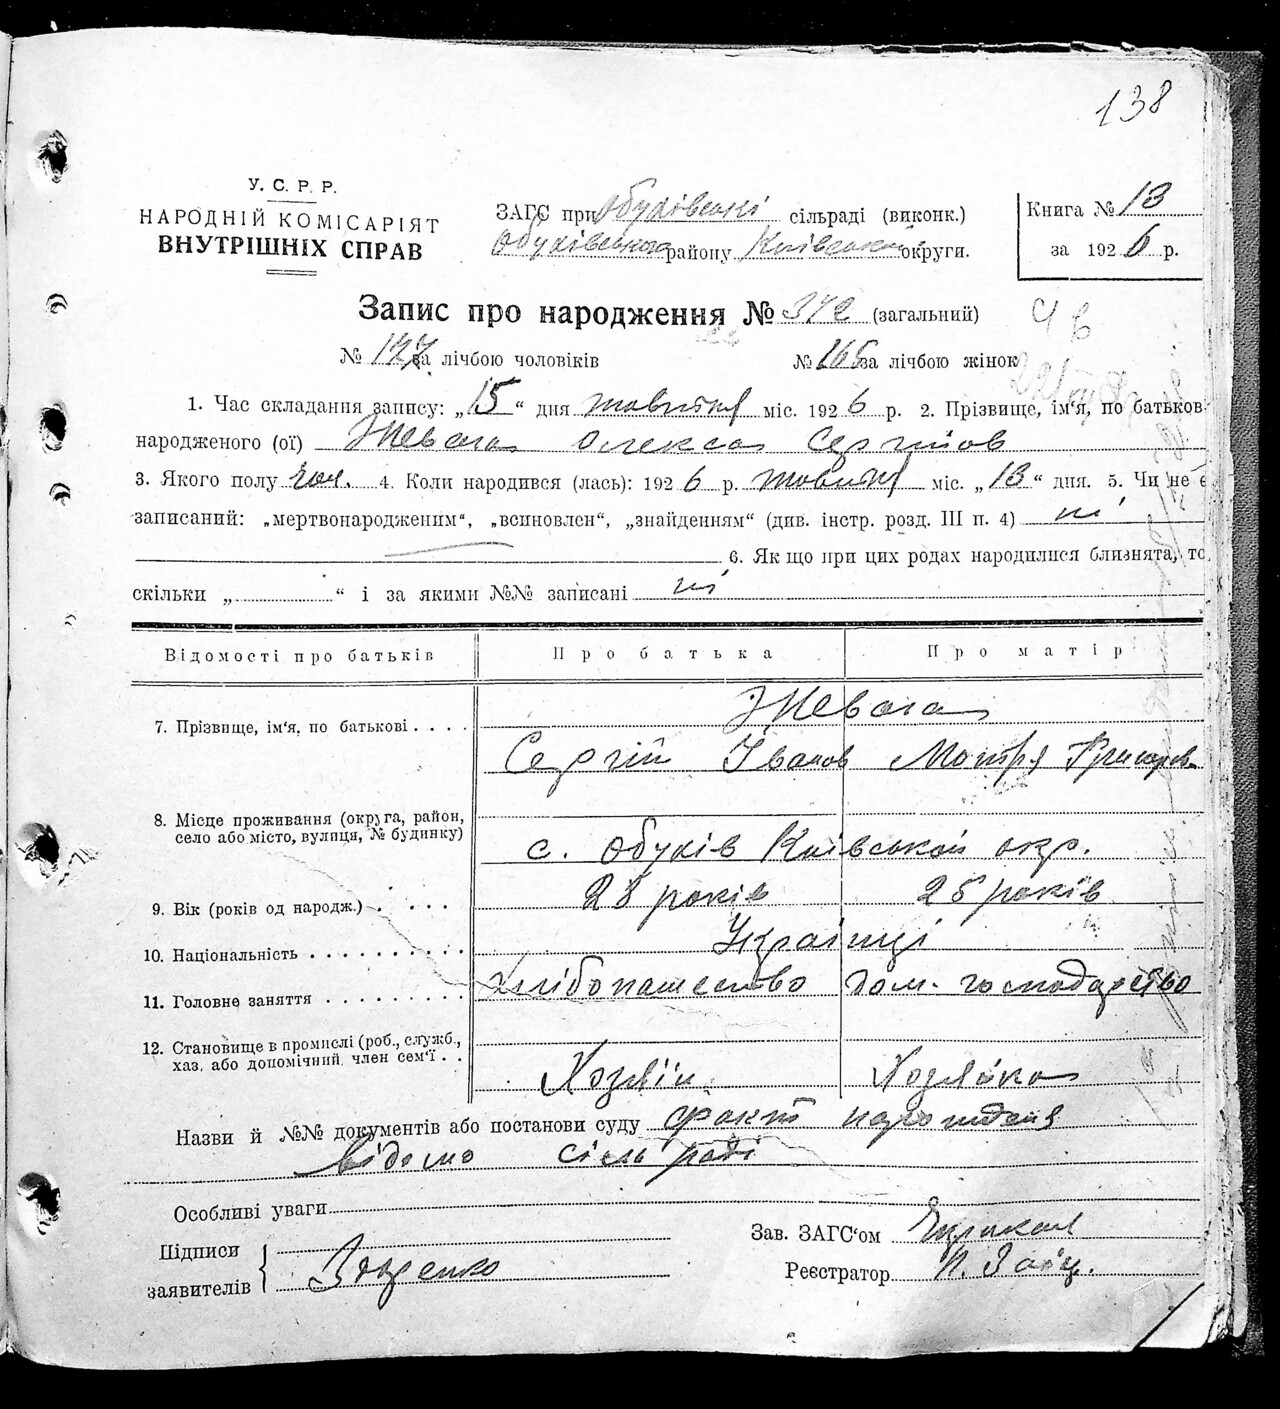 138
У. С. Р. Р.
НАРОДНІЙ КОМІСАРІЯТ
ВНУТРІШНІХ СПРАВ
ЗАГС при Обухівські сільраді (виконк.)
Обухівського району Київської округи.
Книга № 13
за 1926 р.
Запис про народження № 342 (загальний)
№ 177 за лічбою чоловіків № 165 за лічбою жінок
1. Час складання запису: „15“ дня жовтня міс. 1926 р. 2. Прізвище, ім‘я, по батьков
народженого (ої) Жевага Олекса Сергіїов
3. Якого полу чол. 4. Коли народився (лась): 1926 р. жовтня міс. „13“ дня. 5. Чи не є
записаний: „мертвонародженим“, „всиновлен“, „знайденням“ (див. інстр. розд. III п. 4) ні
6. Як що при цих родах народилися близнята, то
скільки „ “ і за якими №№ записані ні
Відомості про батьків Про батька Про матір
7. Прізвище, ім‘я, по батькові Жевага
Сергій Іванов Мотря Григоров
8. Місце проживання (округа, район,
село або місто, вулиця, № будинку)
с. Обухів Київської окр.
9. Вік (років од народж.) 28 років 25 років
10. Національність Українці
11. Головне заняття Хлібопашество дом. господарство
12. Становище в промислі (роб., служб.,
хаз. або допомічний член сем‘ї
Хозяїн Хозяйка
Назви й №№ документів або постанови суду факт народження
відомо сільраді
Особливі уваги
Підписи
заявителів
Зав. ЗАГС‘ом
Реєстратор П. Заєц.